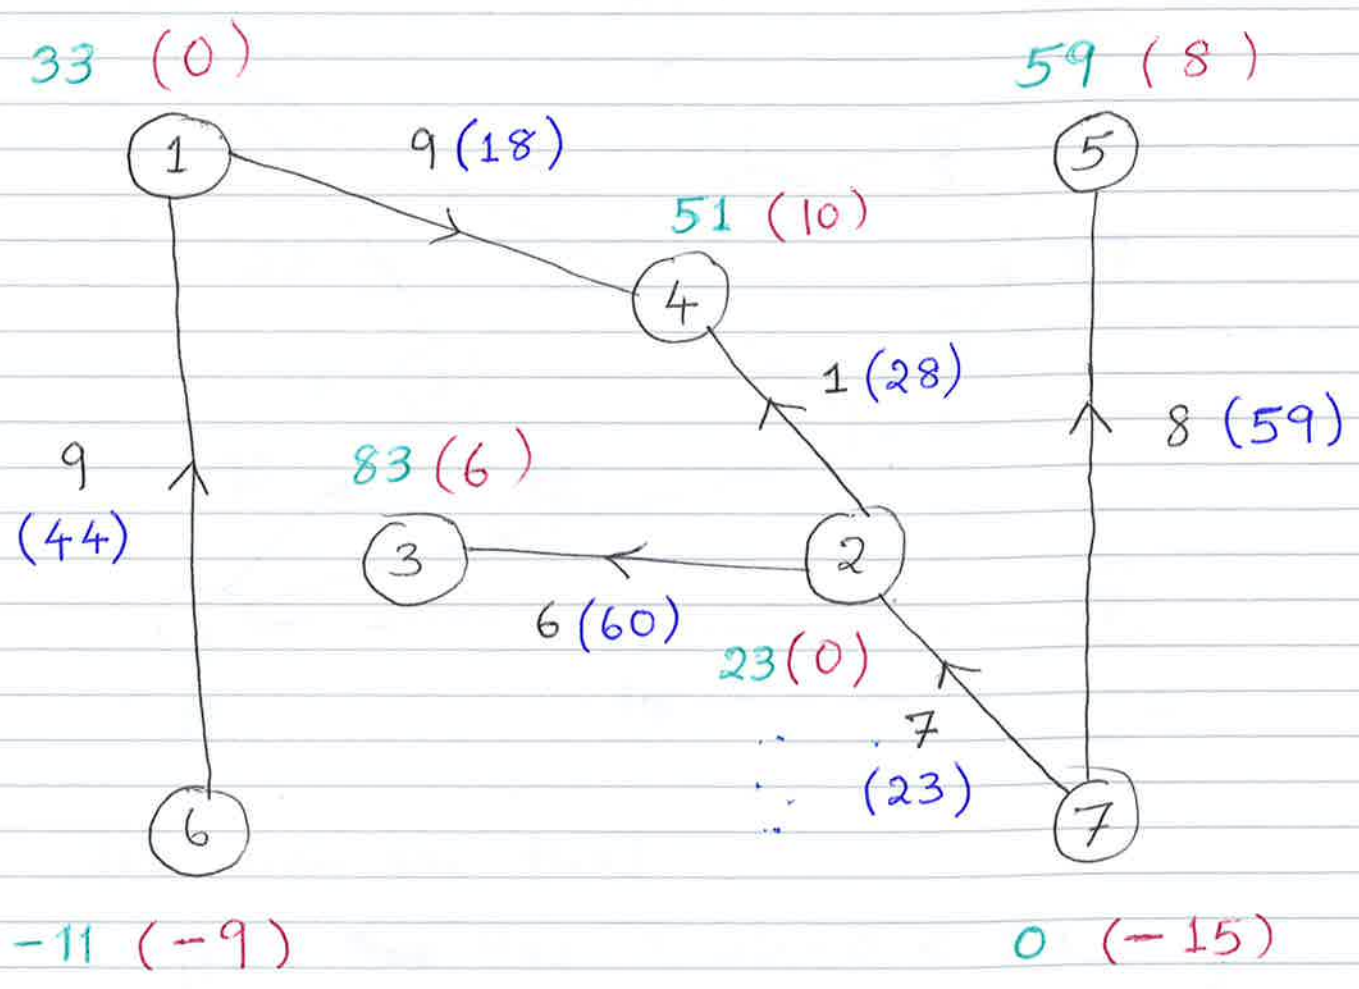 33 (0)
59 (8)
1
9 (18)
5
51 (10)
4
1 (28)
8 (59)
9
(44)
83 (6)
3
2
6 (60)
23 (0)
7
(23)
6
7
-11 (-9)
0 (-15)